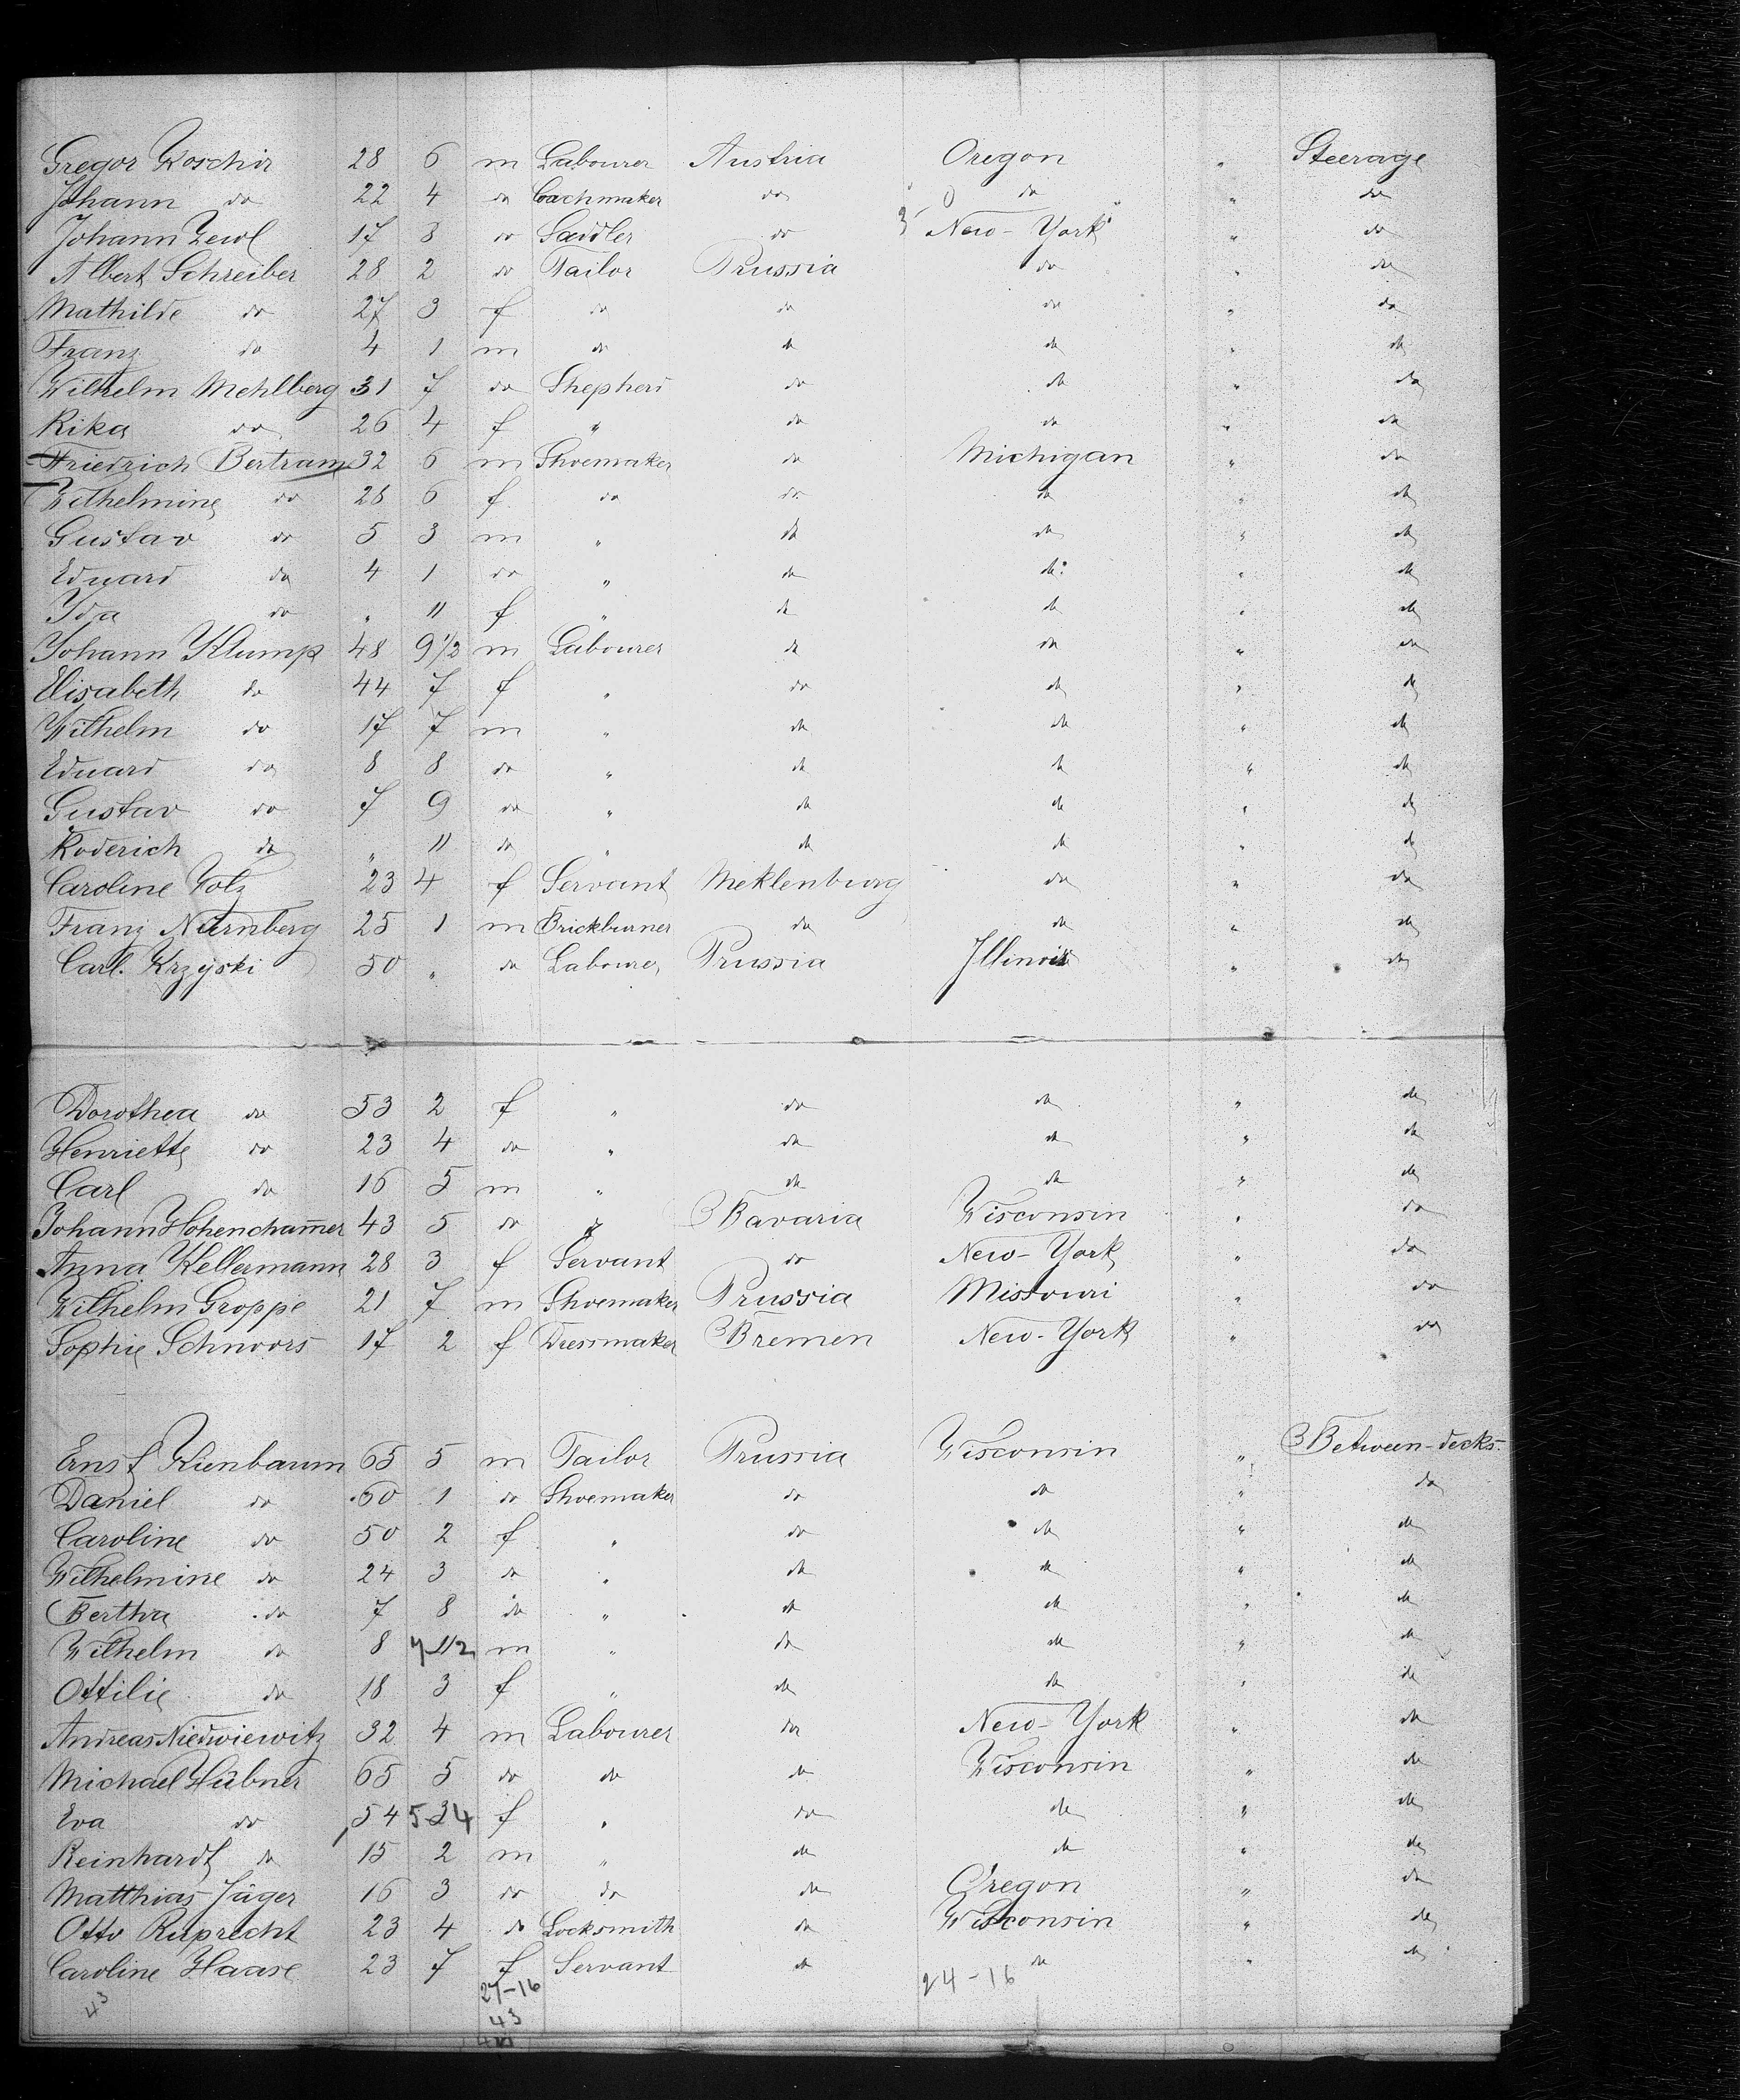 Gregor Koschir 28 6 m Labourer Austria Oregon " Steerage
Johann do 22 4 do Coachmaker do do " do
Johann 17 8 do Saddler do New-York " do
Albert Schreiber 28 2 do Tailor Prussia do " do
Mathilde do 27 3 f do do do " do
Franz do 4 1 m do do do " do
Wilhelm Mehlberg 31 7 do Shepherd do do " do
Rika do 26 4 f " do do " do
Friedrich Bertram 32 6 m Shoemaker do Michigan " do
Wilhelmine do 28 6 f do do do " do
Gustav do 5 3 m " do do " do
Eduard do 4 1 do " do do " do
Ida do " 11 f " do do " do
Johann Klump 48 9 1/2 m Labourer do do " do
Elisabeth do 44 7 f " do do " do
Wilhelm do 17 7 m " do do " do
Eduard do 8 8 do " do do " do
Gustav do 7 9 do " do do " do
Roderich do " 11 do " do do " do
Caroline 23 4 f Servant Meklenburg do " do
Franz Nürnberg 25 1 m Brickburner do do " do
Carl Krzyski 50 " do Labourer Prussia Illinois " do
Dorothea do 53 2 f " do do " do
Henriette do 23 4 do " do do " do
Carl do 16 5 m " do do " do
Johann Hohencham̅er 43 5 do " Bavaria Wisconsin " do
Anna Kellermann 28 3 f Servant do New-York " do
Wilhelm Groppe 21 7 m Shoemaker Prussia Missouri " do
Sophie Schnoors 17 2 f Dressmaker Bremen New-York " do
Ernst Kienbaum 65 5 m Tailor Prussia Wisconsin " Between-decks
Daniel do 60 1 do Shoemaker do do " do
Caroline do 50 2 f " do do " do
Wilhelmine do 24 3 do " do do " do
Bertha do 7 8 do " do do " do
Wilhelm do 8 m " do do " do
Ottilie do 18 3 f " do do " do
Andreas Niedwiewitz 32 4 m Labourer do New-York " do
Michael Hübner 65 5 do do do Wisconsin " do
Eva do 54 f " do do " do
Reinhardt do 15 2 m " do do " do
Matthias Jäger 16 3 do do do Oregon " do
Otto Ruprecht 23 4 do Locksmith do Wisconsin " do
Caroline Haase 23 7 f Servant do do " do
43 27-16 24-16
43